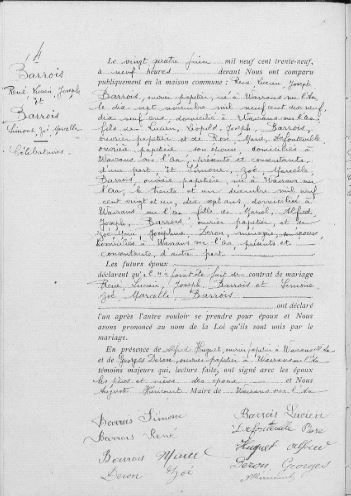 4
Barrois
René, Lucien, Joseph
et
Barrois
Simone, Zoé, Marcelle
Célibataires
Le vingt quatre juin mil neuf cent trente-neuf,
à neuf heures devant Nous ont comparu
publiquement en la maison commune : René, Lucien, Joseph
Barrois, ouvrier papetier, né à Wavrans sur l'Aa,
le dix sept novembre mil neuf cent dix neuf,
dix neuf ans, domicilié à Wavrans sur l'Aa,
fils de Lucien, Léopold, Joseph, Barrois,
ouvrier papetier et de Rose, Marie,
ouvrière papetière son épouse, domiciliés à
Wavrans sur l'Aa, présents et consentants,
d'une part, Et Simone, Zoé, Marcelle,
Barrois, ouvrière papetière, née à Wavrans sur
l'Aa, le trente et un décembre mil neuf
cent vingt et un, dix sept ans, domiciliée à
Wavrans sur l'Aa, fille de Marcel, Alfred,
Joseph, Barrois, ouvrier papetier, et de
Zoé, Joséphine, Deron, ménagère,
domiciliés à Wavrans sur l'Aa, présents et
consentants, d'autre part
Les futurs époux
déclarent qu'il n'a pas été fait de contrat de mariage
René, Lucien, Joseph Barrois et Simone
Zoé, Marcelle, Barrois
ont déclaré
l'un après l'autre vouloir se prendre pour époux et Nous
avons prononcé au nom de la Loi qu'ils sont unis par le
mariage.
En présence de Alfred Huguet, ouvrier papetier à Wavrans sur l'Aa
et de Georges Deron, ouvrier papetier à Wavrans sur l'Aa
témoins majeurs qui, lecture faite, ont signé avec les époux
les pères et mères des époux et Nous
Auguste Maire de Wavrans sur l'Aa
Barrois Simone
Barrois Lucien
Barrois René
Rose
Huguet Alfred
Barrois Marcel
Deron Georges
Deron Zoé